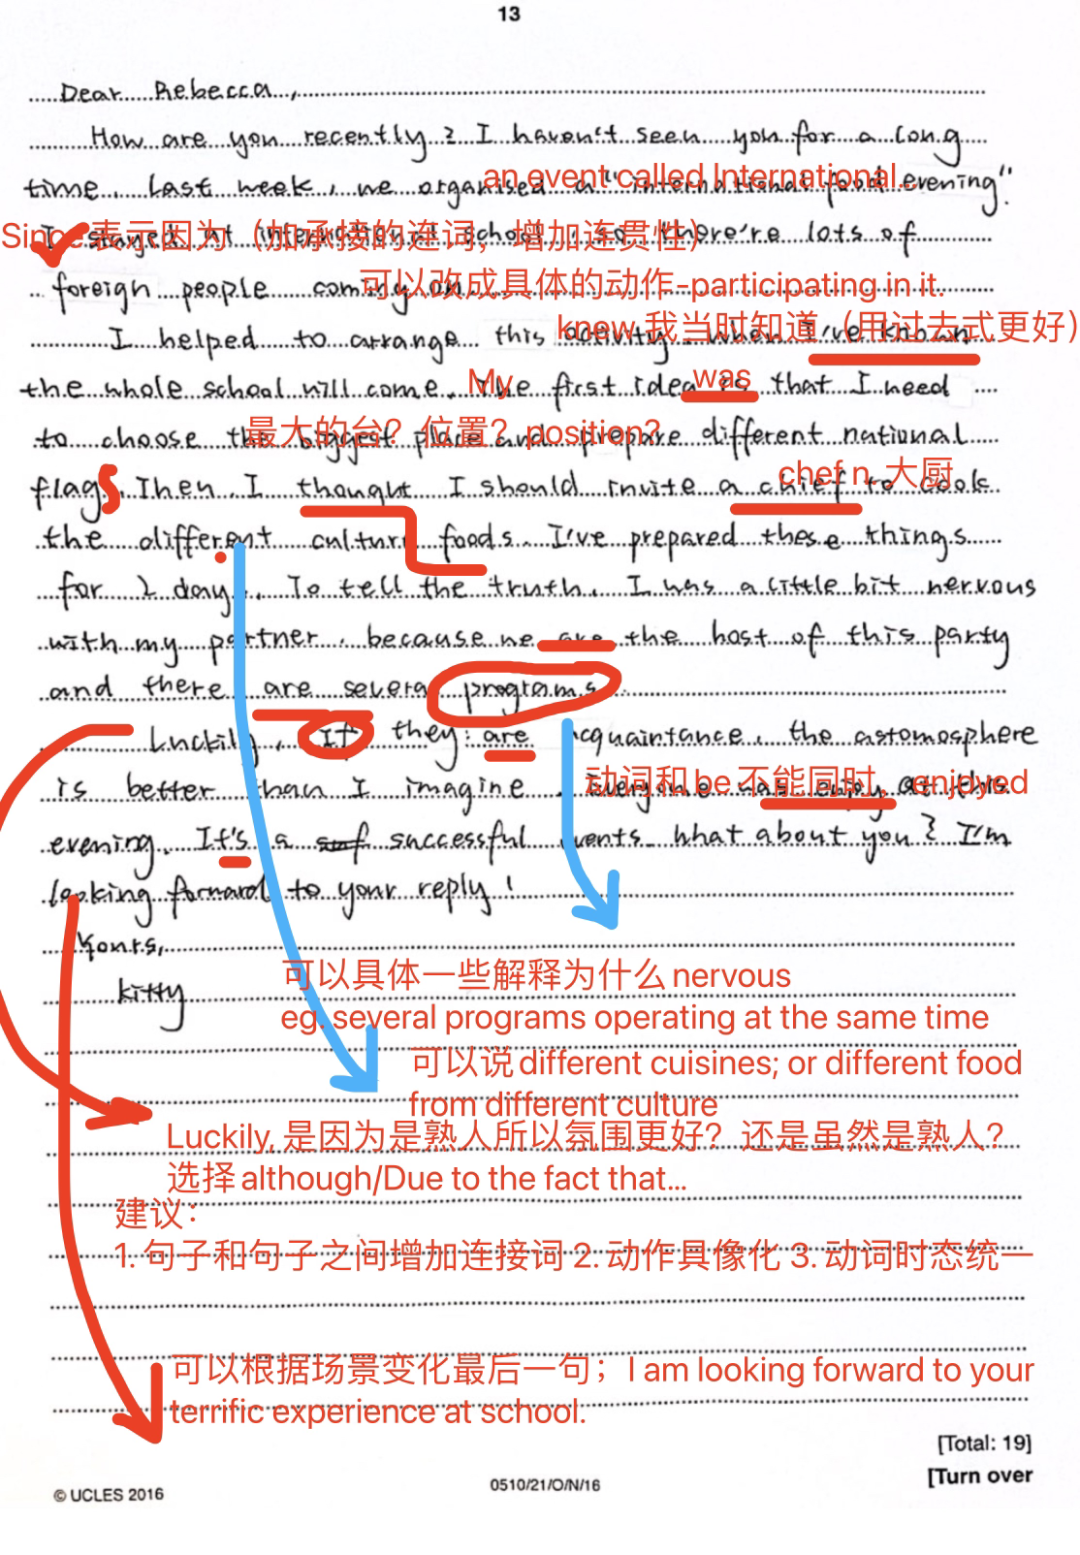 13
Dear Rebecca,
How are you recently? I haven't seen you for a long
an event called International...
time. Last week, we organised a "international food evening".
Since表示因为（加承接的连词，增加连贯性）
I stayed at international school, so there're lots of
可以改成具体的动作-participating in it.
foreign people coming on.
knew 我当时知道（用过去式更好）
I helped to arrange this activity when I've known
My was
the whole school will come. The first idea is that I need
最大的台？位置？position?
to choose the biggest place and prepare different national
chef n.大厨
flags. Then, I thought I should invite a chief to cook
the different culture foods. I've prepared these things
for 2 day. To tell the truth, I was a little bit nervous
with my partner, because we are the host of this party
and there are several programs.
Luckily, If they are acquaintance, the astomosphere
动词和be不能同时, enjoyed
is better than I imagine. Everyone was enjoy at this
evening. It's a successful events. What about you? I'm
looking forward to your reply!
Yours,
kitty
可以具体一些解释为什么nervous
eg. several programs operating at the same time
可以说different cuisines; or different food
from different culture
Luckily, 是因为是熟人所以氛围更好？还是虽然是熟人？
选择although/Due to the fact that...
建议：
1. 句子和句子之间增加连接词 2. 动作具像化 3. 动词时态统一
可以根据场景变化最后一句；I am looking forward to your
terrific experience at school.
[Total: 19]
[Turn over
© UCLES 2016
0510/21/O/N/16